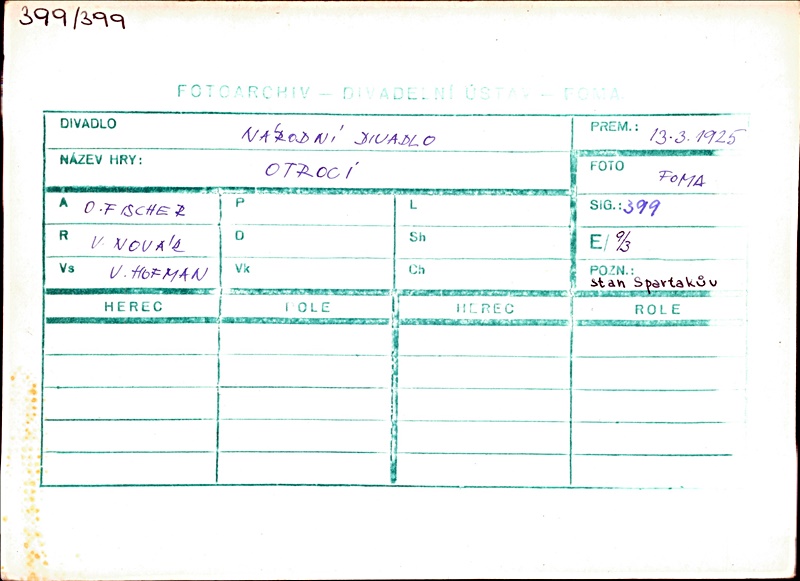 399/399
FOTOARCHIV — DIVADELNÍ ÚSTAV — FOMA
DIVADLO NÁRODNÍ DIVADLO PREM.: 13.3.1925
NÁZEV HRY: OTROCI FOTO FOMA
A O.FISCHER P L SIG.: 399
R V. NOVÁK D Sh E/ 9/3
Vs V. HOFMAN Vk Ch POZN.: stan Spartakův
HEREC ROLE HEREC ROLE